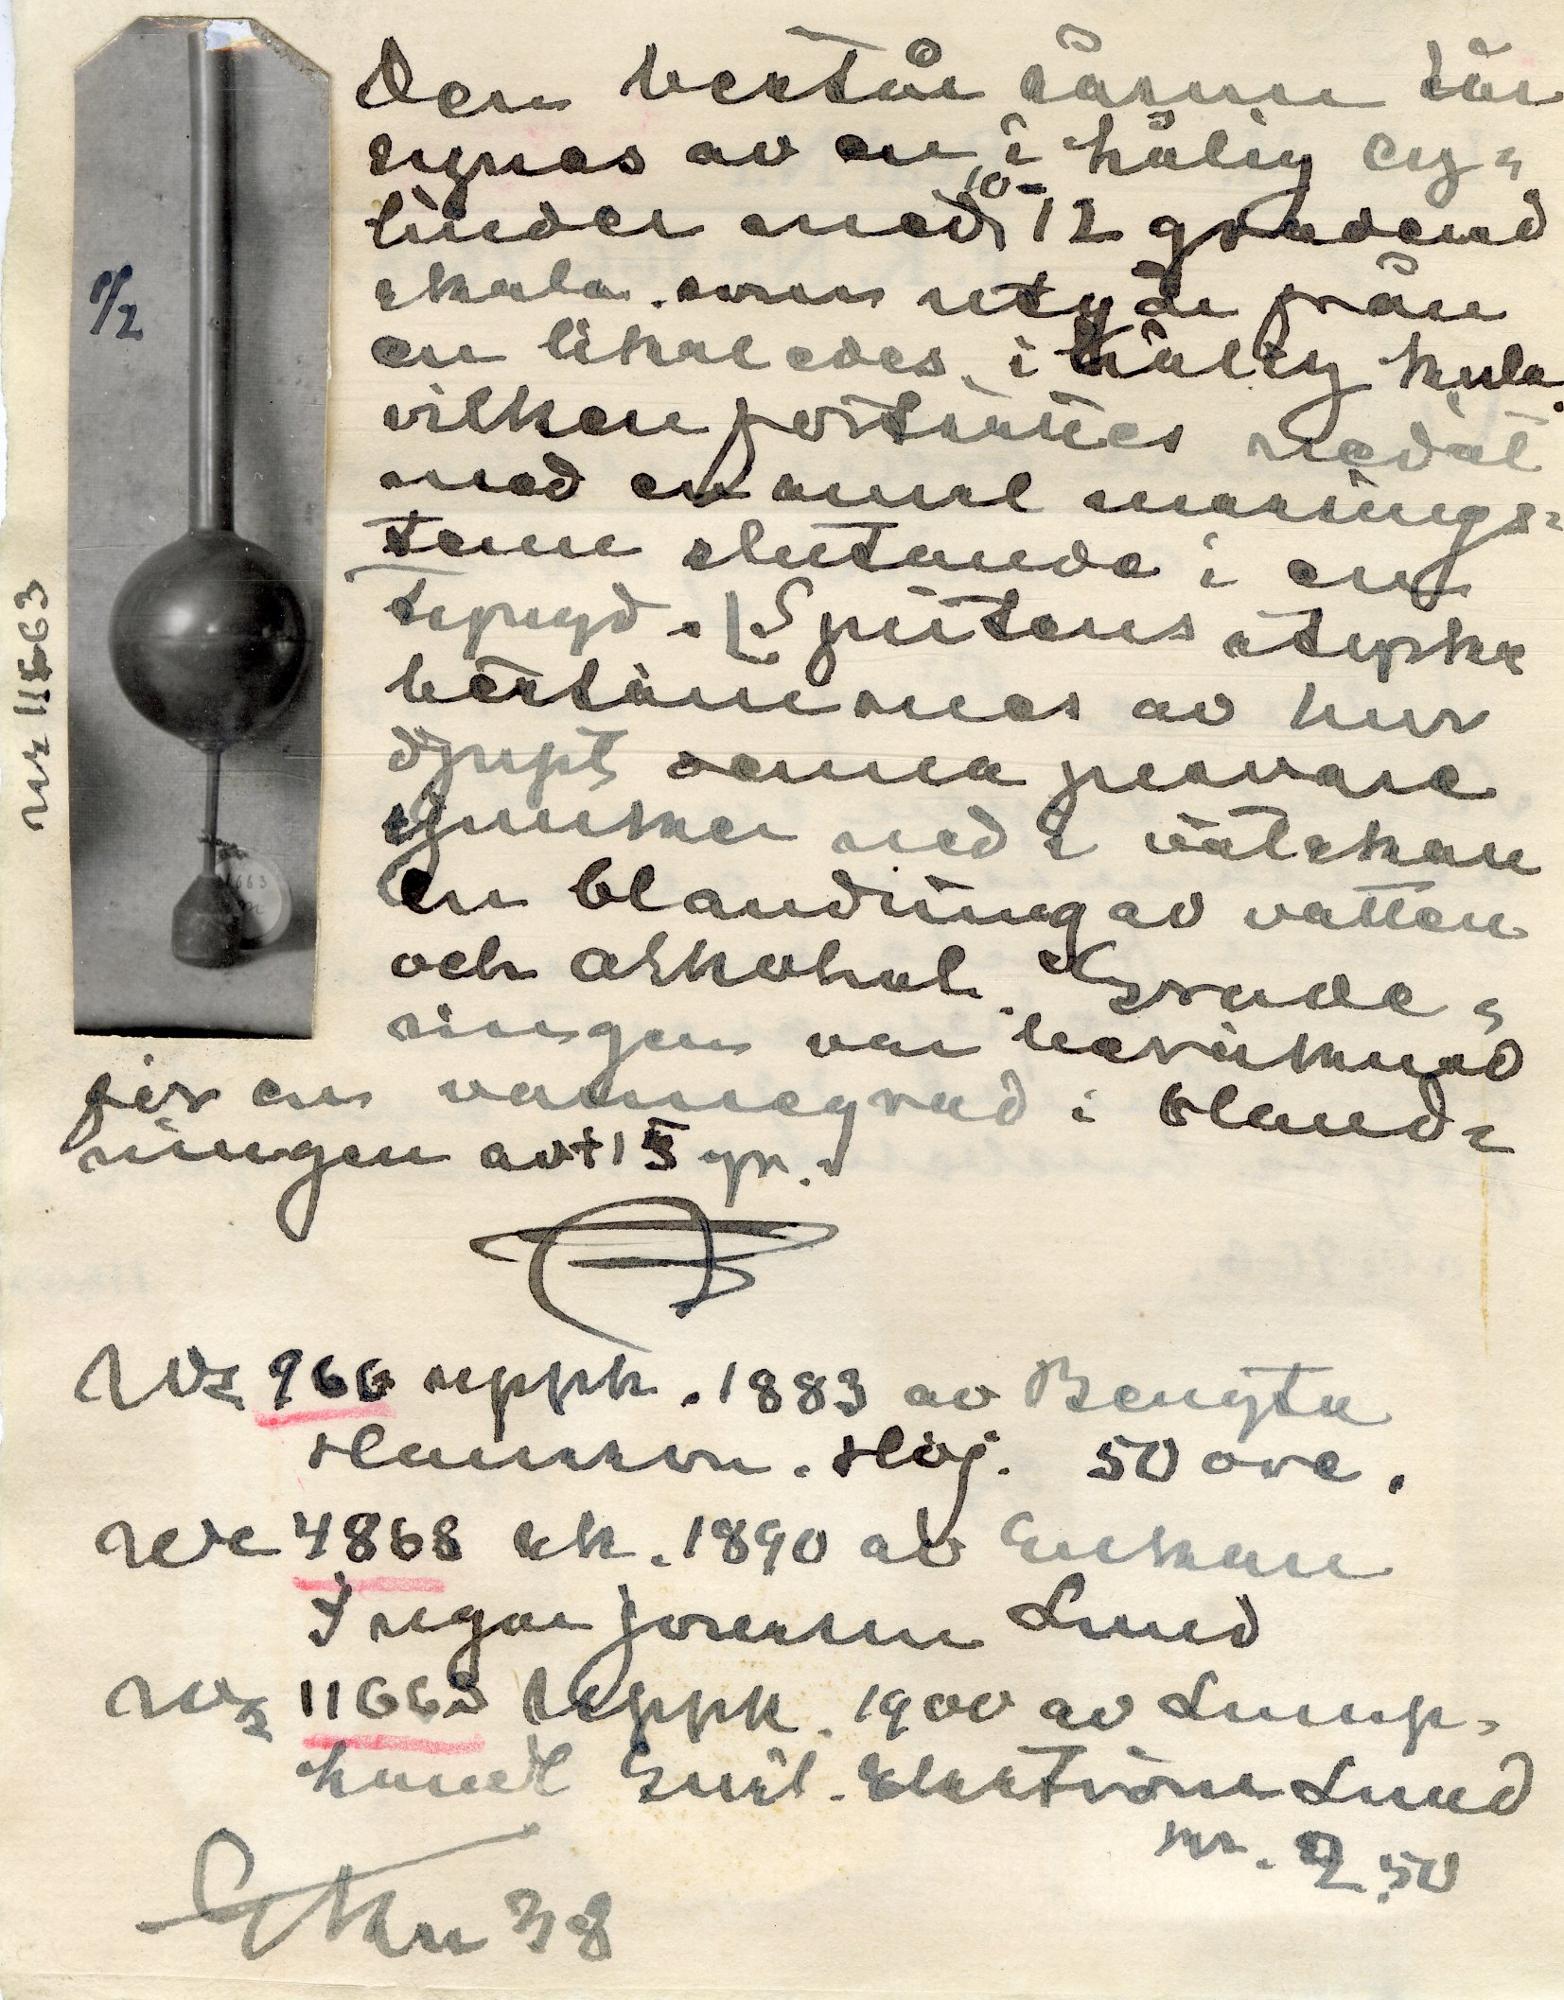 Den består såsom här
synes av en ihålig cy-
linder med 10-12 graderad
skala som utgår från
en likaledes ihålig kula
vilken fortsättes nedåt
med en smal mässings-
ten slutande i en
tyngd. Spritens styrka
bestämmes av hur
djupt denna provare
sjunker ned i vätskan
en blandning av vatten
och alkohol. Grade-
ringen var beräknad
för en värmegrad i bland-
ningen av +15 gr.
1/2
nr 11663
Nr 966 uppk. 1883 av Bengta
Hansson. Höj. 50 öre.
Nr 4868 sk. 1890 av Enkan
Ingar Jönsson Lund
Nr 11663 uppk. 1900 av Lump-
handl Emil Ekström Lund
kr. 2.50
38